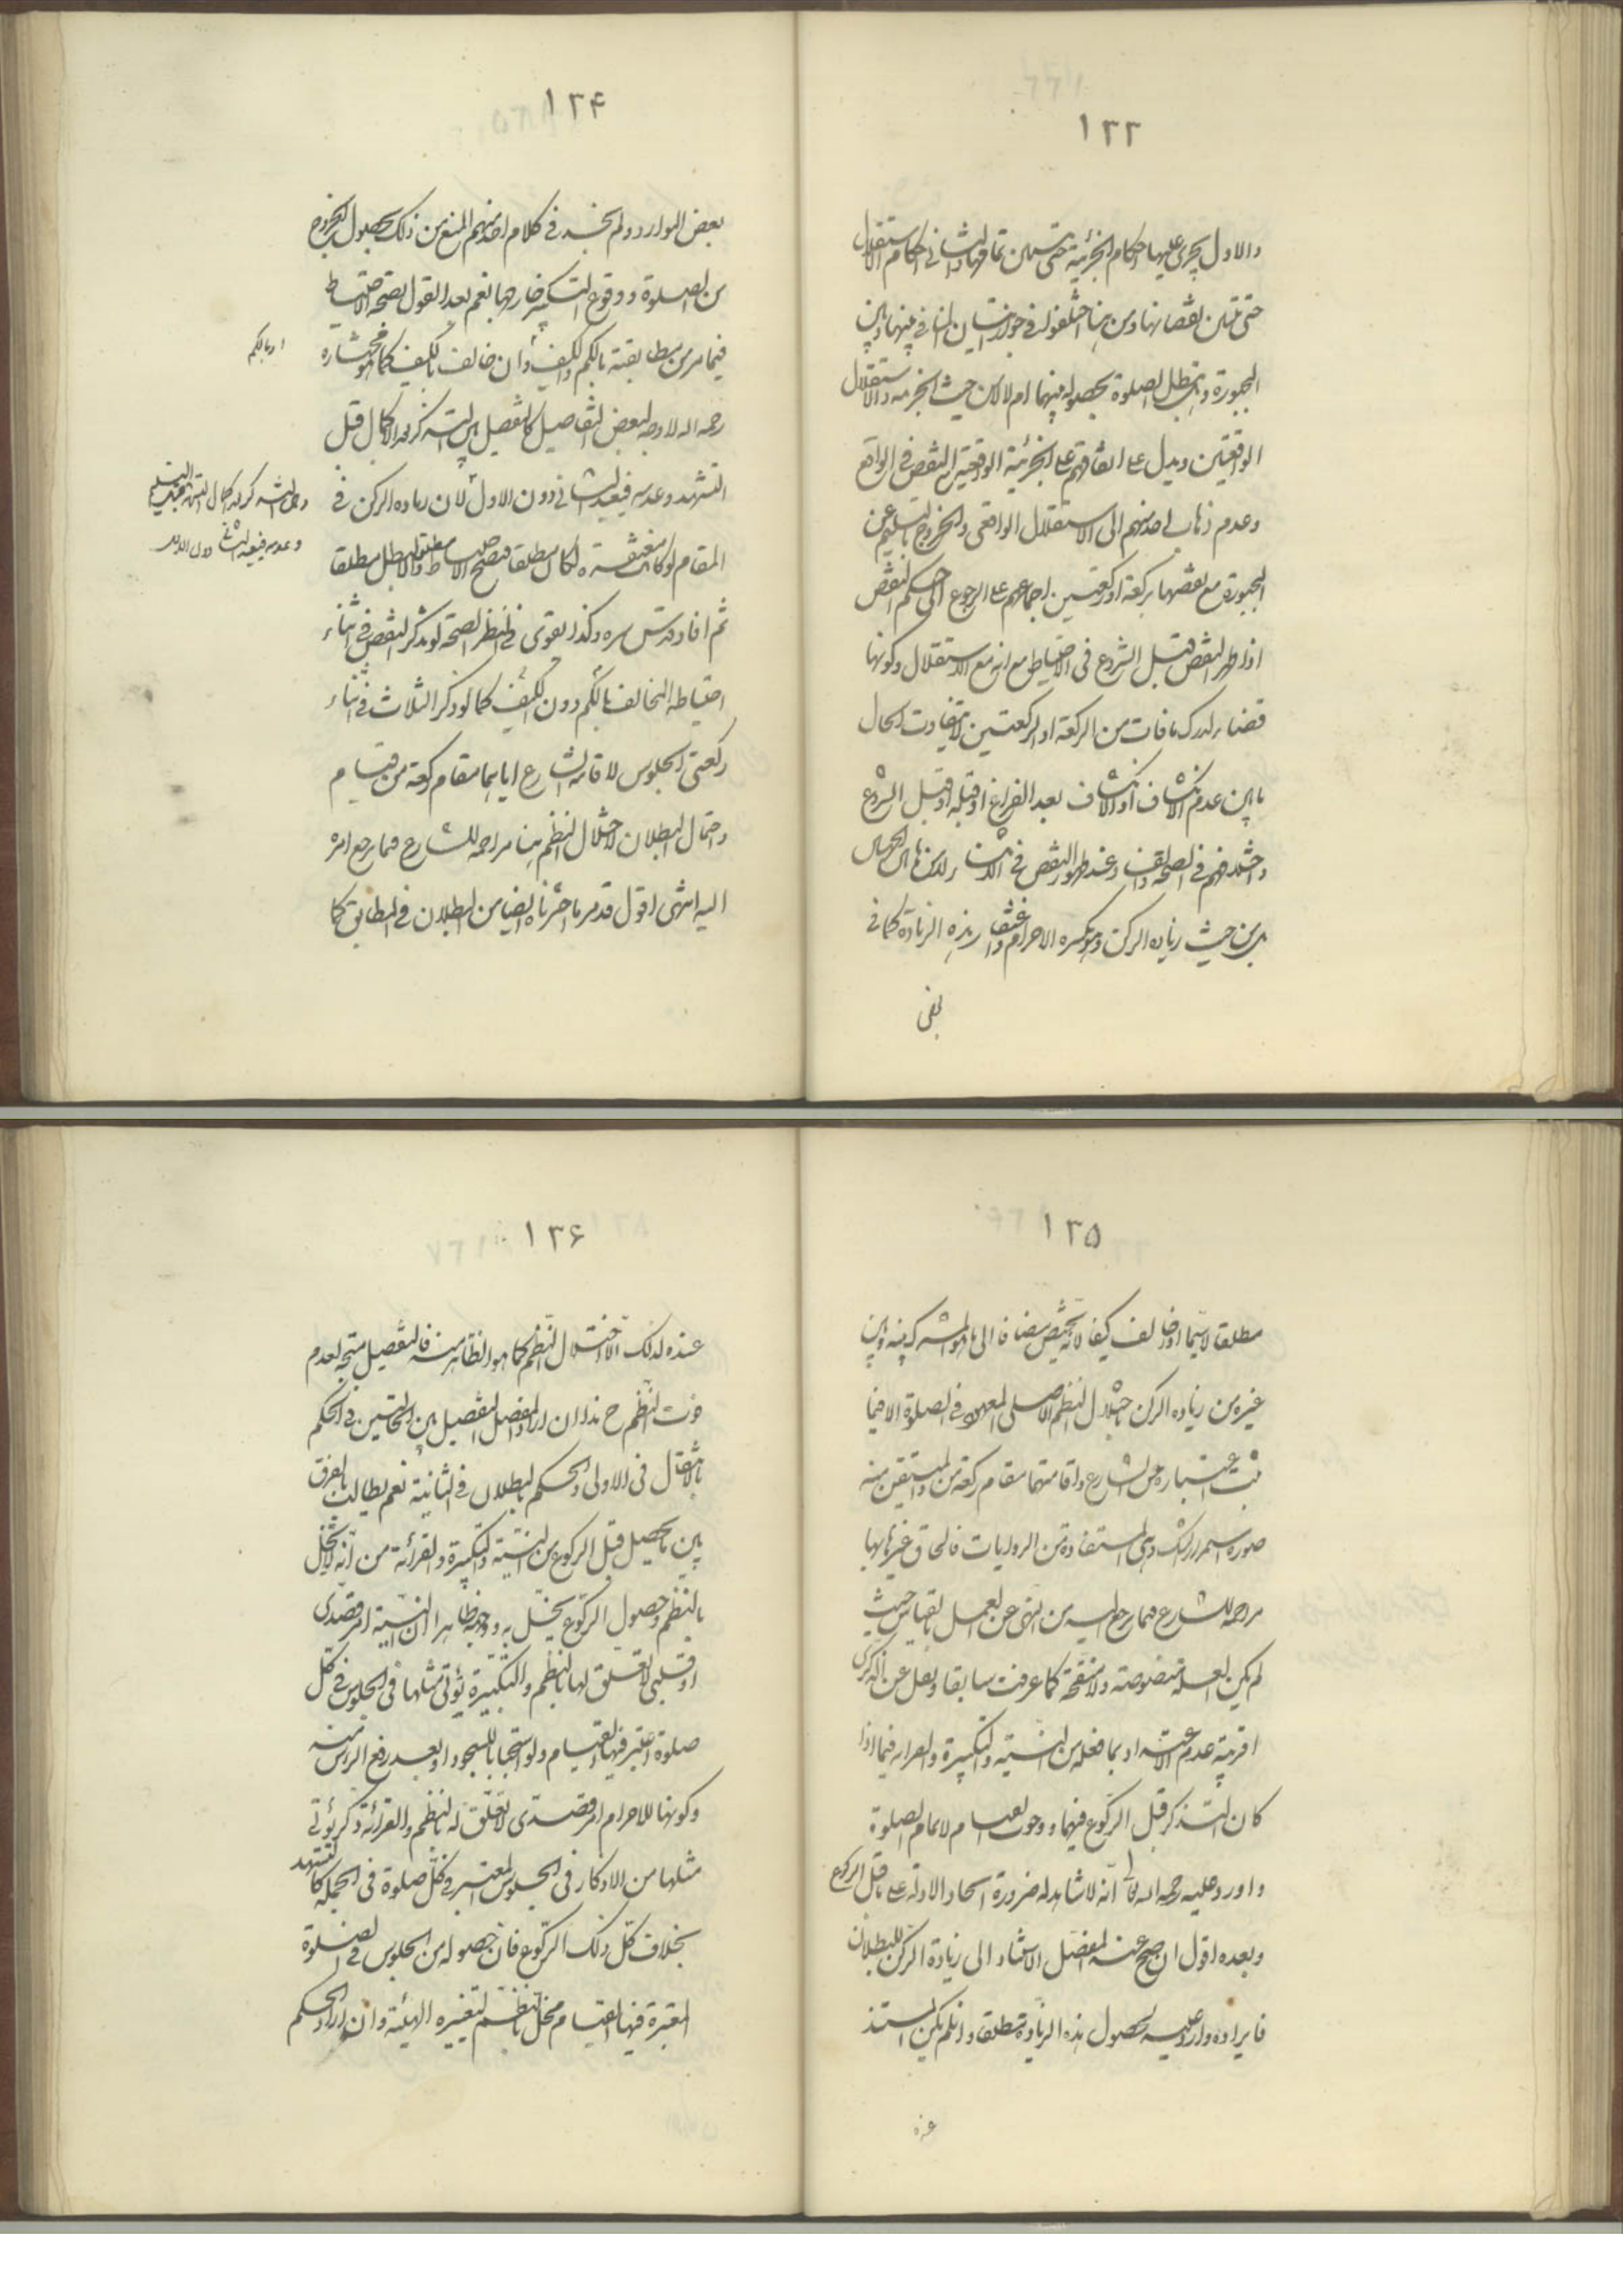 ١٣٣
والاول يجرى عليها احكام الجزئية حتى تتبين تمامها والثانى احكام الاستقلال
حتى تتبين نقصانها ومن هنا اختلفوا فى جواز اتيان المنافى بينها وبين
المجبورة وتبطل الصلوة بحصوله بينهما ام لا لا من حيث الجزئية والاستقلال
الواقعيتين ويدل على اتفاقهم على الجزئية الواقعية مع النقص فى الواقع
وعدم ذهاب احد منهم الى الاستقلال الواقعى والخروج بالتسليم عن
المجبورة مع نقصها بركعة او ركعتين اجماعهم على الرجوع الى حكم النقص
اذا ظهر النقص قبل الشروع فى الاحتياط مع انه مع الاستقلال وكونها
قضاء لدرك ما فات من الركعة او الركعتين لا يتفاوت الحال
ما بين عدم الانكشاف او الانكشاف بعد الفراغ او قبله او قبل الشروع
واختلافهم فى الصحة عند ظهور النقص فى الاثناء
من حيث زيادة الركن وهو تكبيرة الاحرام واغتفار هذه الزيادة كما فى
بعض
١٣۴
بعض الموارد ولم نجد فى كلام احد منهم المنع من ذلك بحصول الخروج
من الصلوة ووقوع التكبير خارجها نعم بعد القول بصحة الاحتياط
فيما مر من مطابقته بالكم والكيف وان خالف بالكيف كما هو مختاره
او بالكم
رحمه الله لا وجه لبعض التفاصيل كالتفصيل بين التذكر بعد الاكمال قبل
التشهد وعدمه فيعيد الثانى دون الاول لان زيادة الركن فى
المقام لو كانت مغتفرة لكان مطلقا فتصح الاحتياط مطلقا والا بطل مطلقا
ثم افاد قدس سره وكذا يقوى فى النظر الصحة لو تذكر النقص فى اثناء
احتياطه المخالف بالكم دون الكيف كما لو ذكر الثلاث فى اثناء
ركعتى الجلوس لاقامة الشارع اياهما مقام ركعة من قيام
واحتمال البطلان لاختلال النظم هنا مزاحمة للشارع فيما رجع امره
اليه انتهى اقول قد مر ما اخترناه ايضا من البطلان فى المطابق كما
١٣۵
مطلقا لا سيما اذا خالف كيفا لانه يختص مضافا الى ما هو المشترك بينه وبين
غيره من زيادة الركن باختلال النظم الاصلى المعهود فى الصلوة الا فيما
ثبت اعتباره من الشارع واقامتهما مقام ركعة من قيام والمتيقن منه
صورة استمرار الشك وهى المستفادة من الروايات فالحاق غيرها بها
مزاحمة للشارع فيما رجع اليه من النهى عن العمل بالقياس حيث
لم يكن العلة منصوصة ولا منقحة كما عرفت سابقا ونقل عن الذكرى
اقربية عدم الاعتداد بما فعله من النية والتكبيرة والقرائة فيما اذا
كان التذكر قبل الركوع فيهما ووجوب القيام لاتمام الصلوة
واورد عليه رحمه الله بانه لا شاهد له ضرورة اتحاد الادلة على ما قبل الركوع
وبعده اقول ان صح عند المفصل الاستناد الى زيادة الركن للبطلان
فايراده وارد عليه لحصول هذه الزيادة مطلقا وان لم يكن المستند
عنده
١٣۶
عنده لذلك الا اختلال النظم كما هو الظاهر منه فالتفصيل متجه لعدم
فوت النظم ح هذا ان اراد المفصل التفصيل بين الحالتين فى الحكم
بالانتقال فى الاولى والحكم بالبطلان فى الثانية نعم يطالب بالفرق
بين ما يحصل قبل الركوع من النية والتكبيرة والقرائة من انه لا يخل
بالنظم وحصول الركوع يخل به ووجهه ظاهر اذ النية امر قصدى
او قلبى لا تعلق لها بالنظم والتكبيرة يؤتى مثلها فى الجلوس فى كل
صلوة اعتبر فيها القيام ولو استحبابا للسجود او بعد رفع الراس منه
وكونها للاحرام امر قصدى لا تعلق له بالنظم والقرائة ذكر يؤتى
مثلها من الاذكار فى الجلوس المعتبر فى كل صلوة فى الجملة كالتشهد
بخلاف كل ذلك الركوع فان حصوله من الجلوس فى الصلوة
المعتبرة فيها القيام مخل بالنظم لتغييره الهيئة وان اراد الحكم